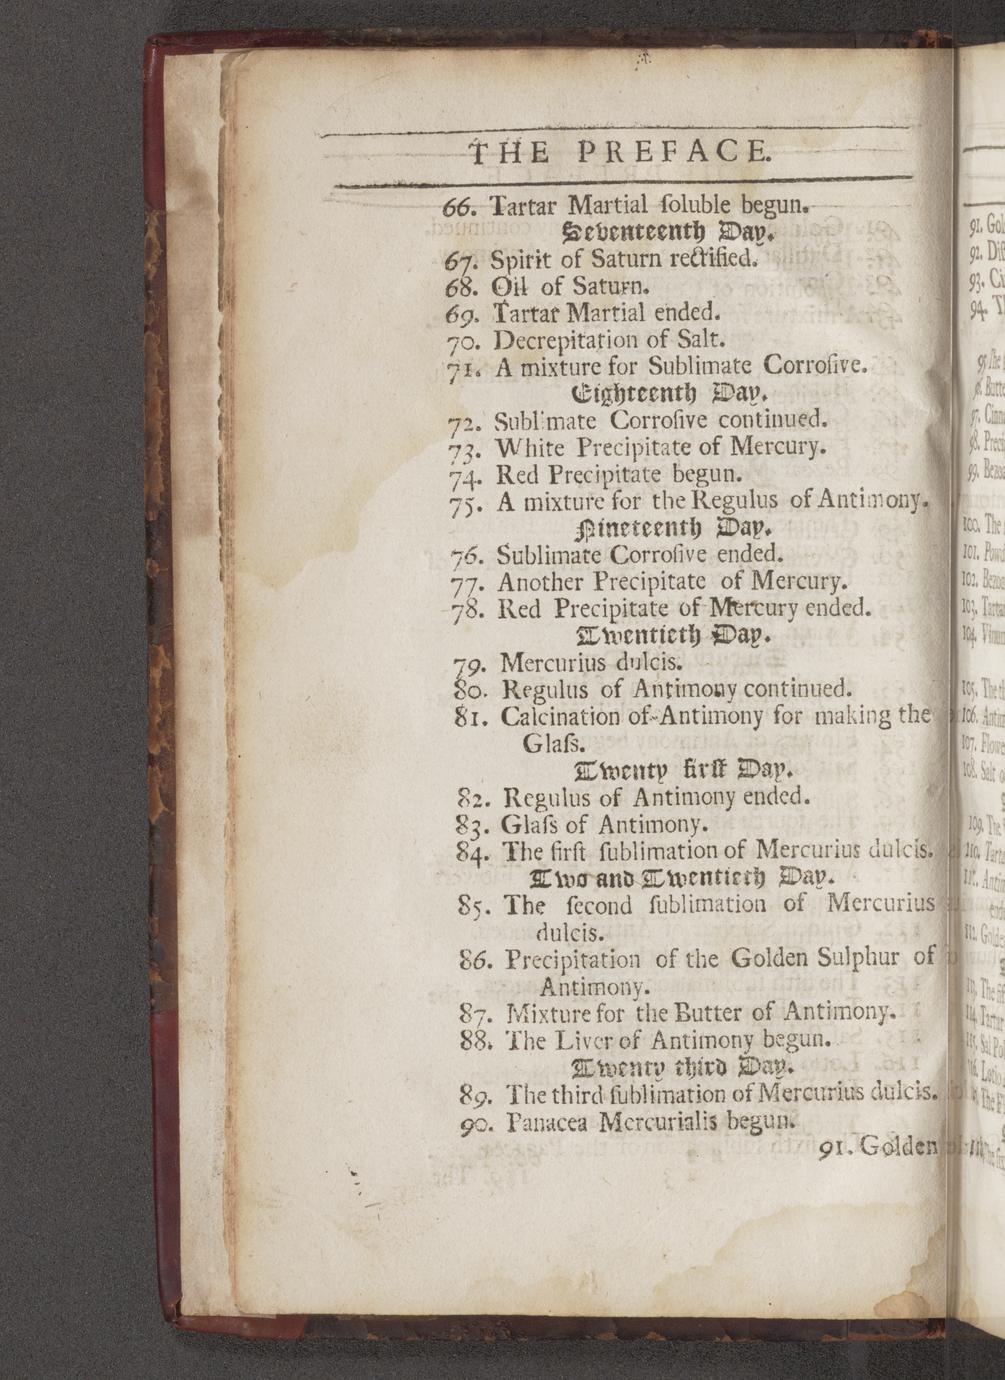 THE PREFACE.
66. Tartar Martial ſoluble begun.
Seventeenth Day.
67. Spirit of Saturn rectified.
68. Oil of Saturn.
69. Tartar Martial ended.
70. Decrepitation of Salt.
71. A mixture for Sublimate Corroſive.
Eighteenth Day.
72. Sublimate Corroſive continued.
73. White Precipitate of Mercury.
74. Red Precipitate begun.
75. A mixture for the Regulus of Antimony.
Nineteenth Day.
76. Sublimate Corroſive ended.
77. Another Precipitate of Mercury.
78. Red Precipitate of Mercury ended.
Twentieth Day.
79. Mercurius dulcis.
80. Regulus of Antimony continued.
81. Calcination of Antimony for making the
Glaſs.
Twenty firſt Day.
82. Regulus of Antimony ended.
83. Glaſs of Antimony.
84. The firſt ſublimation of Mercurius dulcis.
Two and Twentieth Day.
85. The ſecond ſublimation of Mercurius
dulcis.
86. Precipitation of the Golden Sulphur of
Antimony.
87. Mixture for the Butter of Antimony.
88. The Liver of Antimony begun.
Twenty third Day.
89. The third ſublimation of Mercurius dulcis.
90. Panacea Mercurialis begun.
91. Golden
91. Gol
92. Diſ
93. Ci
94.
97. Cinn
98. Preci
99. Bezo
100. The
101. Powd
102. Bezo
103. Tarta
104.
105. The
106. Antim
107. Flowe
108. Salt o
109. The
110. Tarta
111. Antim
112. Golde
113. The
114. Tartar
115. Sal Pol